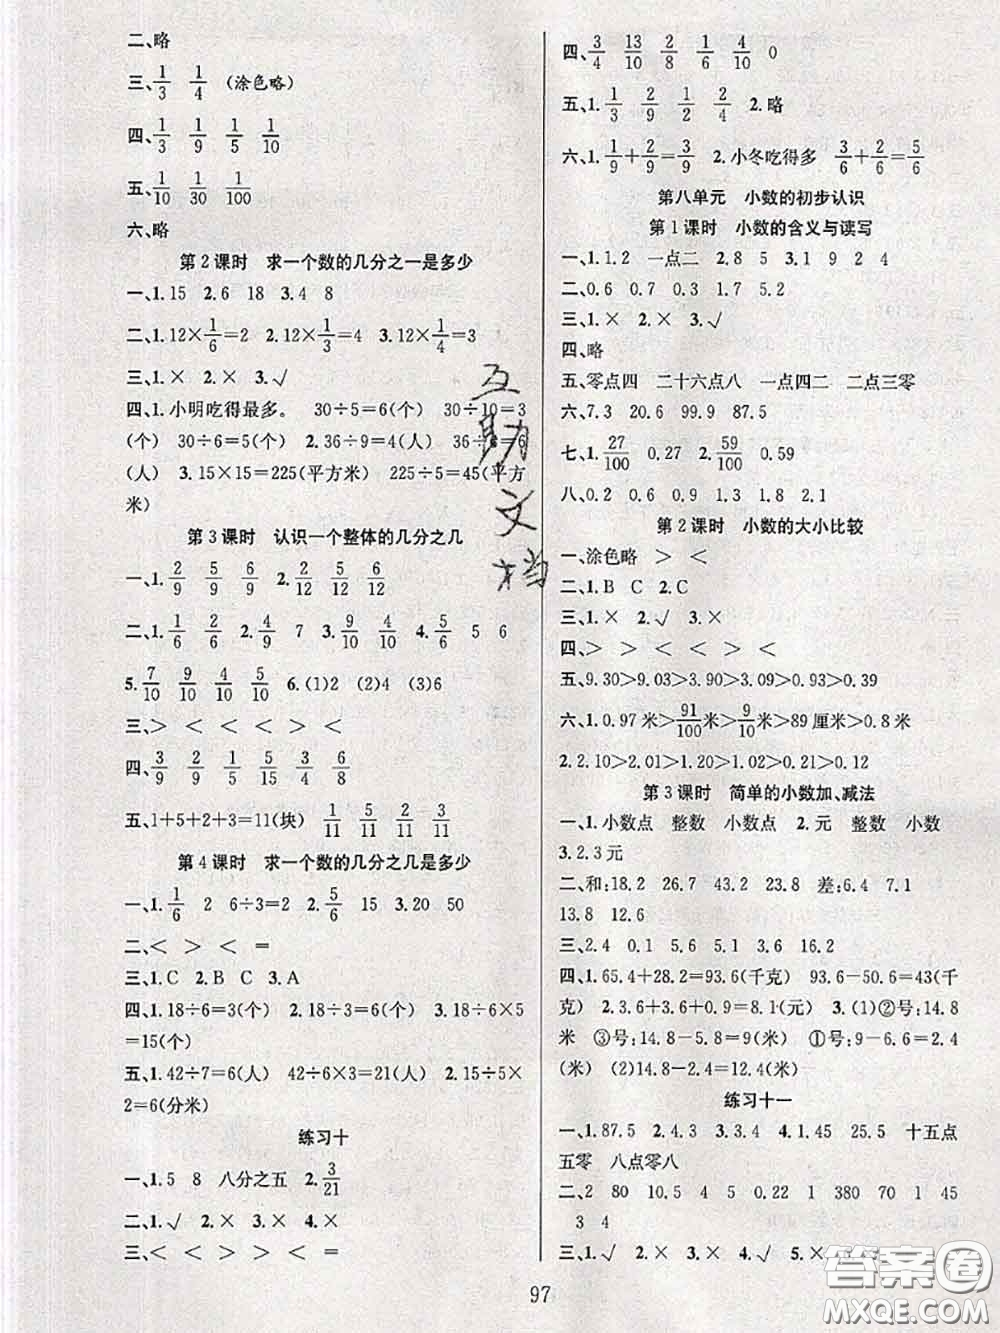 二、略
三、1/3 1/4 (涂色略)
四、1/3 1/9 1/5 1/10
五、1/10 1/30 1/100
六、略
第2课时 求一个数的几分之一是多少
一、1.15 2.6 18 3.4 8
二、1.12×1/6=2 2.12×1/3=4 3.12×1/4=3
三、1.× 2.× 3.√
四、1.小明吃得最多。 30÷5=6(个) 30÷10=3
(个) 30÷6=5(个) 2.36÷9=4(人) 36÷6=6
(人) 3.15×15=225(平方米) 225÷5=45(平方
米)
第3课时 认识一个整体的几分之几
一、1.2/9 5/9 6/9 2.2/12 5/12 5/12
二、1.1/6 2/6 2.4/9 7 3.9/10 4/10 4.5/6 5 6
5.7/10 9/10 4/10 5/10 6.(1)2 (2)4 (3)6
三、> < < < <
四、3/9 2/9 1/5 3/5 3/8 6/8
五、1+5+2+3=11(块) 1/11 5/11 2/11 3/11
第4课时 求一个数的几分之几是多少
一、1.1/6 2 6÷3=2 2.5/6 15 3.20 50
二、< > < =
三、1.C 2.B 3.A
四、1.18÷6=3(个) 2.18÷6=3(个) 3.18÷6×5
=15(个)
五、1.42÷7=6(人) 42÷6×3=21(人) 2.15÷5×
2=6(分米)
练习十
一、1.5 8 八分之五 2.3/21
二、1.√ 2.× 3.× 4.×
三、< < > > < =
四、3/4 13/10 2/8 1/6 4/10 0
五、1.1/3 2/9 1/2 2/4 2.略
六、1.1/9+2/9=3/9 2.小冬吃得多 3/6+2/6=5/6
第八单元 小数的初步认识
第1课时 小数的含义与读写
一、1.1.2 一点二 2.8 5 3.1 9 2 4
二、0.6 0.7 0.3 1.7 5.2
三、1.× 2.× 3.√
四、略
五、零点四 二十六点八 一点四二 二点三零
六、7.3 20.6 99.9 87.5
七、1.27/100 0.27 2.59/100 0.59
八、0.2 0.4 1.1 1.8 2.1
第2课时 小数的大小比较
一、涂色略 > <
二、1.B C 2.C
三、1.× 2.√ 3.×
四、> > < < > <
五、9.30>9.03>3.90>3.09>0.93>0.39
六、1.0.97米>91/100米>9/10米>89厘米>0.8米
2.2.10>2.01>1.20>1.02>0.21>0.12
第3课时 简单的小数加、减法
一、1.小数点 整数 小数点 2.元 整数 小数
3.2.3元
二、和:18.2 26.7 43.2 23.8 差:6.4 7.1
13.8 12.6
三、2.4 0.1 5.6 5.1 3.6 16.2 0.4
四、1.65.4+28.2=93.6(千克) 93.6-50.6=43(千
克) 2.3.6+3.6+0.9=8.1(元) 3.(1)②号:14.8
米 ③号:14.8-5.8=9(米) ①号:9-6.6=2.4
(米) (2)14.8-2.4=12.4(米)
练习十一
一、1.87.5 2.4.3 3.3.4 4.1.45 25.5 十五点
五零 八点零八
二、2 80 10.5 4 5 0.22 1 380 70 1 45
3 4
三、1.√ 2.× 3.× 4.√ 5.×
97
互助文档
答案圈
MXQE.COM